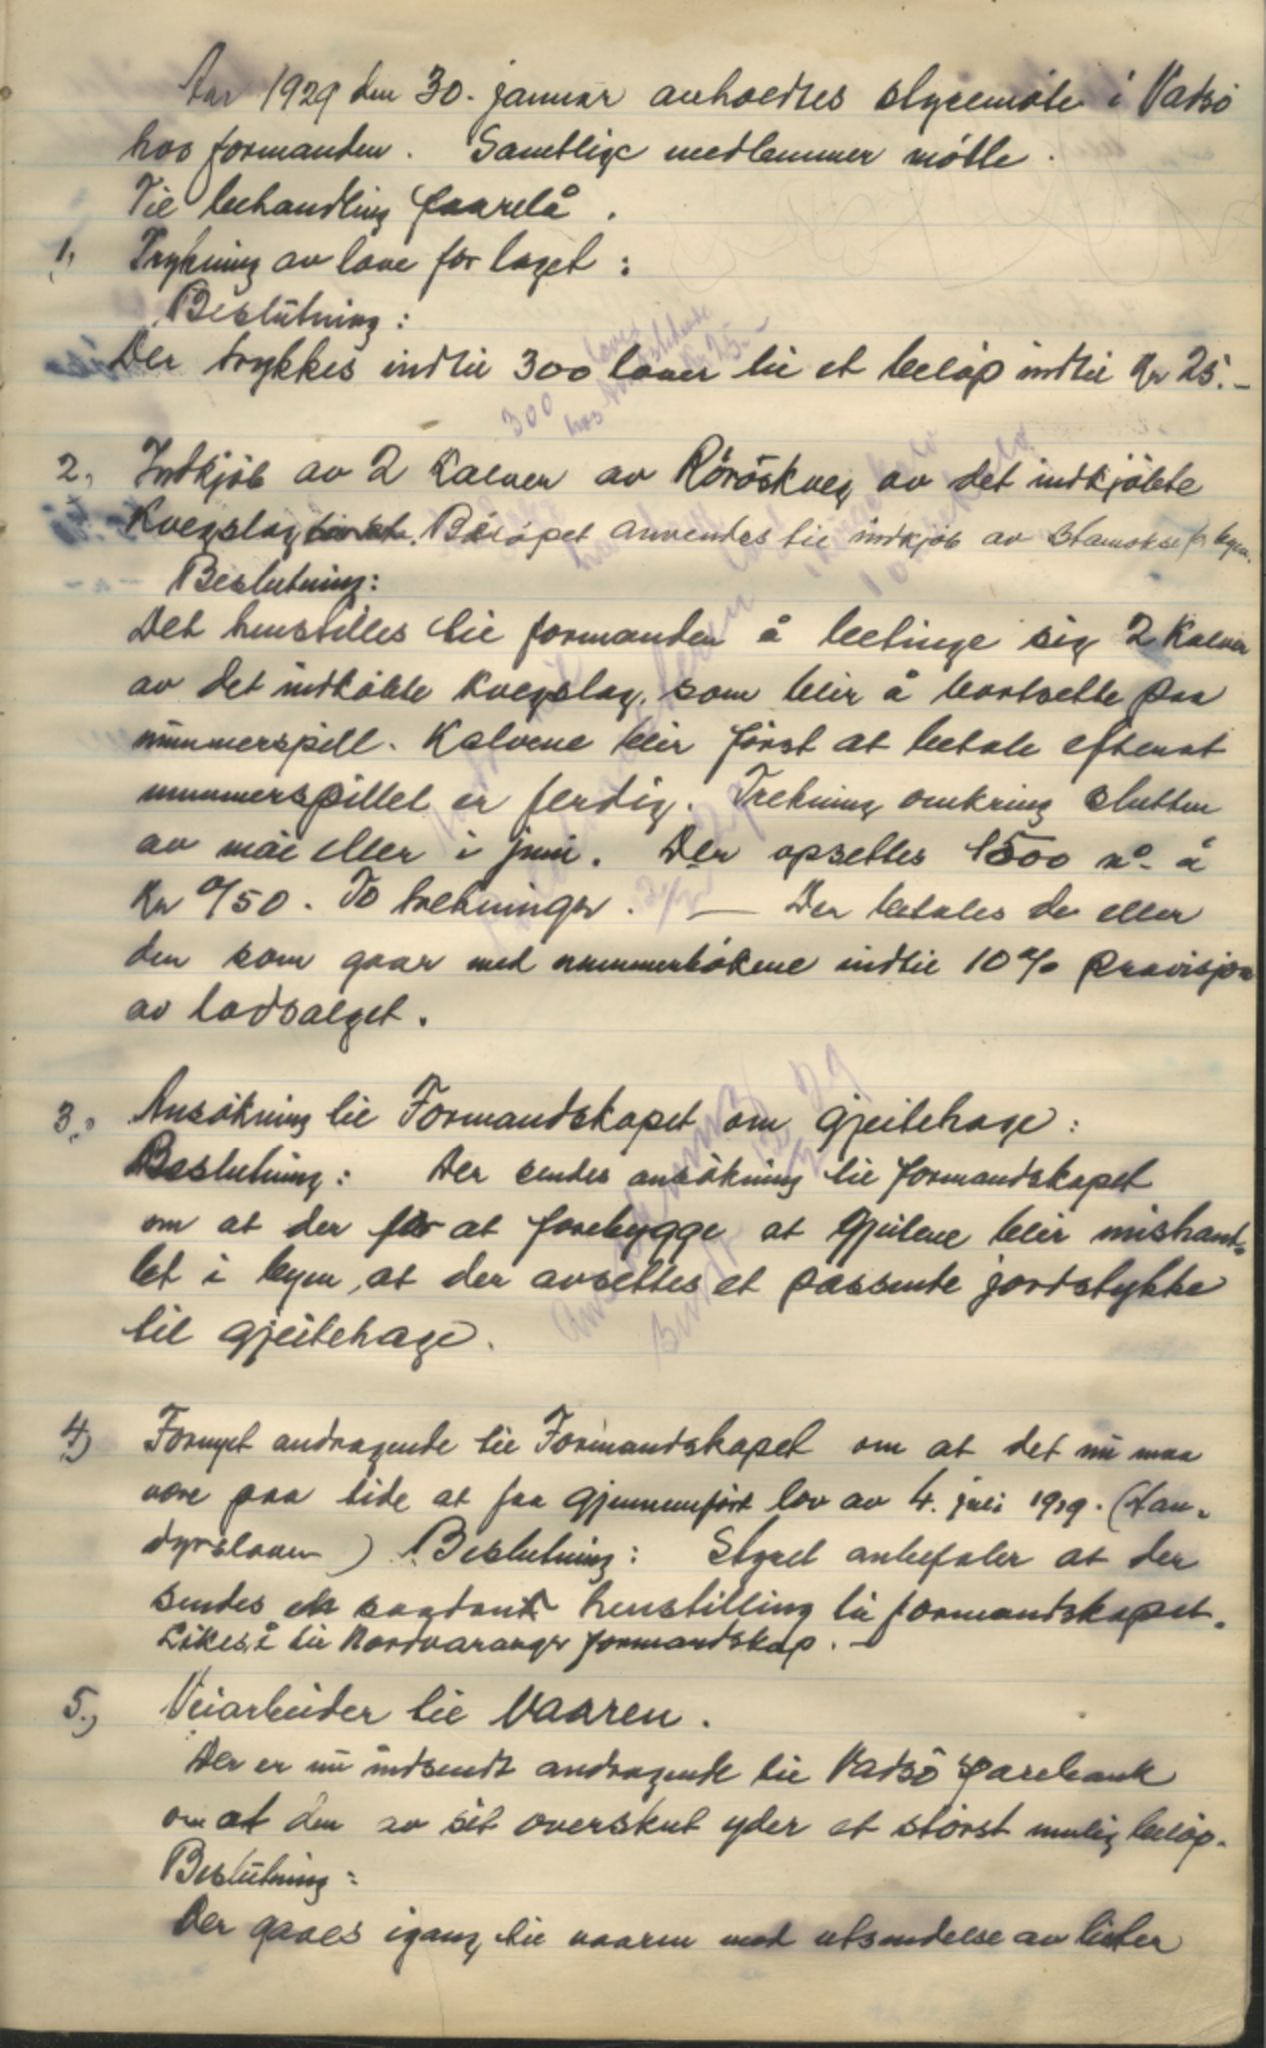 Aar 1929 den 30. januar avholdtes styremöte i Vadsö
hos formanden. Samtlige medlemmer mötte.
Til behandling foorelå.
1, Trykning av love for laget:
Beslutning:
Der trykkes indtil 300 lover til et belöp indtil Kr 25.-
2, Indkjöb av 2 Kalver av Röröskveg av det indkjöbte
Kvegslag. Belöpet anvendes til indkjöb av Stamokse for byen.
Beslutning:
Det henstilles til formanden å betinge sig 2 Kalver
av det indköbte kvegslag, som blir å bortsette paa
nummerspill. Kalvene blir först at betale efterat
nummerspillet er ferdig. Trekning omkring slutten
av mai eller i juni. Der opsettes 1500 no. å
Kr 0/50. To trekninger. — Der betales de eller
den som gaar med nummerbökene indtil 10% provisjon
av lodsalget.
3., Ansökning til Formandskapet om gjeitehage:
Beslutning: Der sendes ansökning til formandskapet
om at der for at forebygge at gjeitene blir mishand-
let i byen, at der avsettes et passende jordstykke
til gjeitehage.
4) Fornyet andragende til Formandskapet om at det nu maa
være paa tide at faa gjennemfört lov av 4. juli 1919. (Han-
dyrsloven) Beslutning: Styret anbefaler at der
sendes en saadan henstilling til formandskapet.
Likeså til Nordvaranger formandskap. -
5., Veiarbeider til Vaaren.
Der er nu indsendt andragende til Vadsö Sparebank
om at den av sit overskut yder et störst mulig belöp.
Beslutning:
Der gaaes igang til vaaren med utsendelse av lister